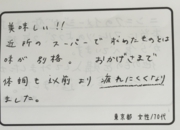 美味しい!!
近所のスーパーで求めたものとは
味が別格。おかげさまで
体調も以前より疲れにくくなり
ました。
東京都 女性/70代